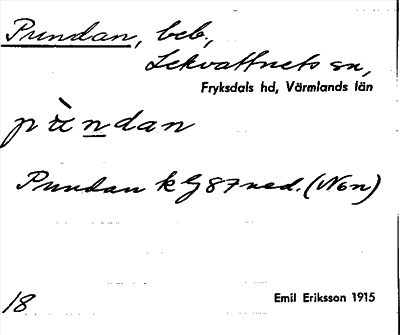 Pundan, beb.,
Lekvattnets sn,
Fryksdals hd, Värmlands län
pǜndan
Pundan k G 87 ned. (Non)
18
Emil Eriksson 1915